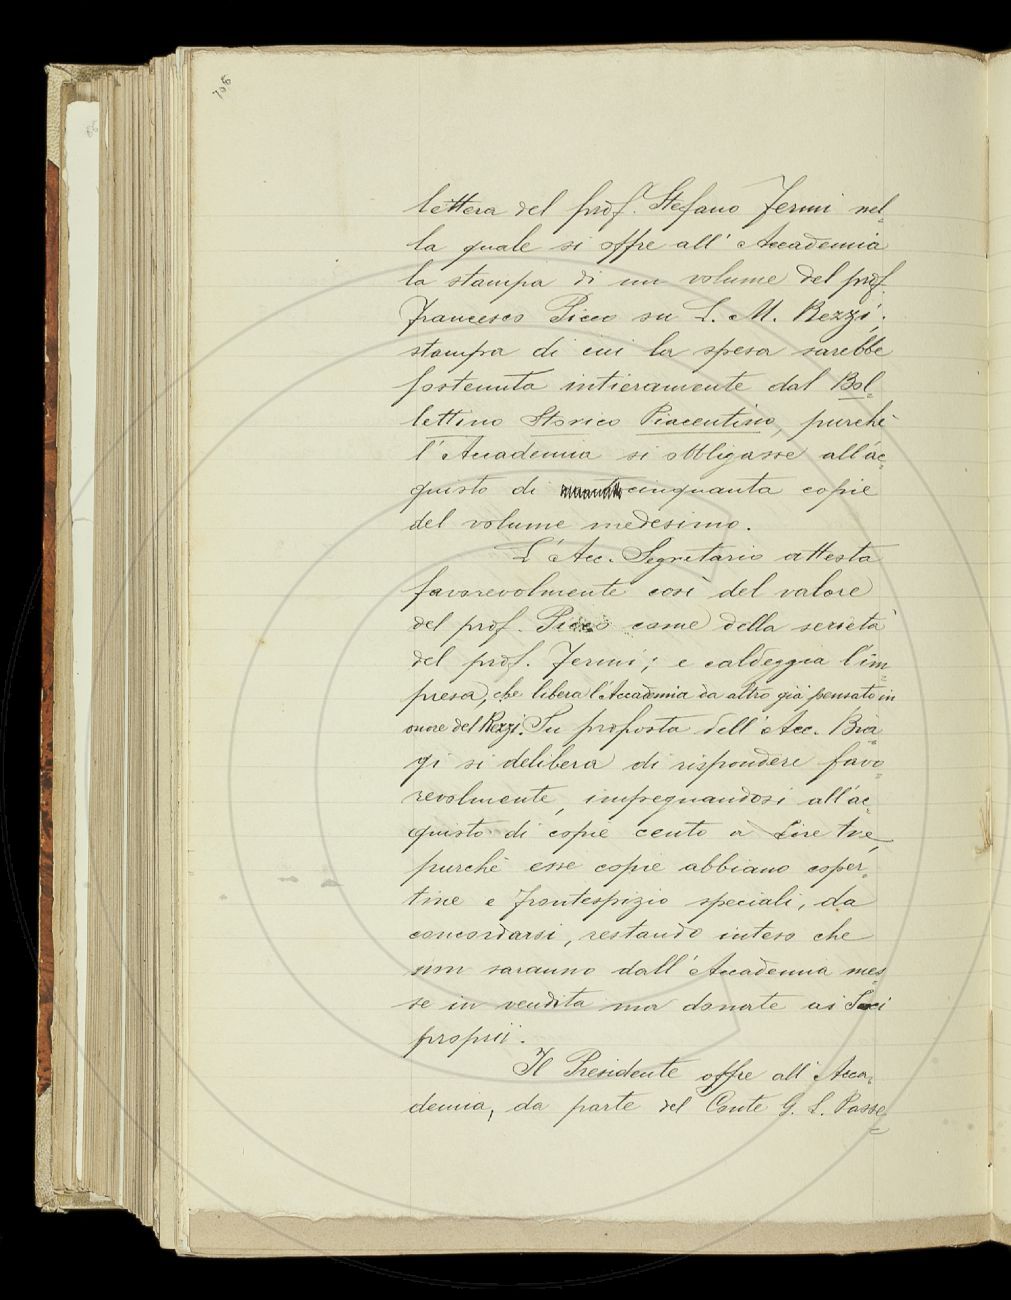 706
lettera del prof. Stefano Fermi nel=
la quale si offre all'Accademia
la stampa di un volume del prof.
Francesco Picco su L. M. Rezzi;
stampa di cui la spesa sarebbe
sostenuta intieramente dal Bol=
lettino Storico Piacentino, purchè
l'Accademia si obbligasse all'ac=
quisto di cinquanta copie
del volume medesimo.
L'Acc. Segretario attesta
favorevolmente così del valore
del prof. Picco come della serietà
del prof. Fermi; e caldeggia l'im=
presa, che libera l'Accademia da altro già pensato in
onore del Rezzi. Su proposta dell'Acc. Bia=
gi si delibera di rispondere favo=
revolmente, impegnandosi all'ac=
quisto di copie cento a Lire tre,
purchè esse copie abbiano coper=
tine e frontespizio speciali, da
concordarsi, restando inteso che
non saranno dall'Accademia mes=
se in vendita ma donate ai Soci
proprii.
Il Presidente offre all'Acca=
demia, da parte del Conte G. L. Passe=